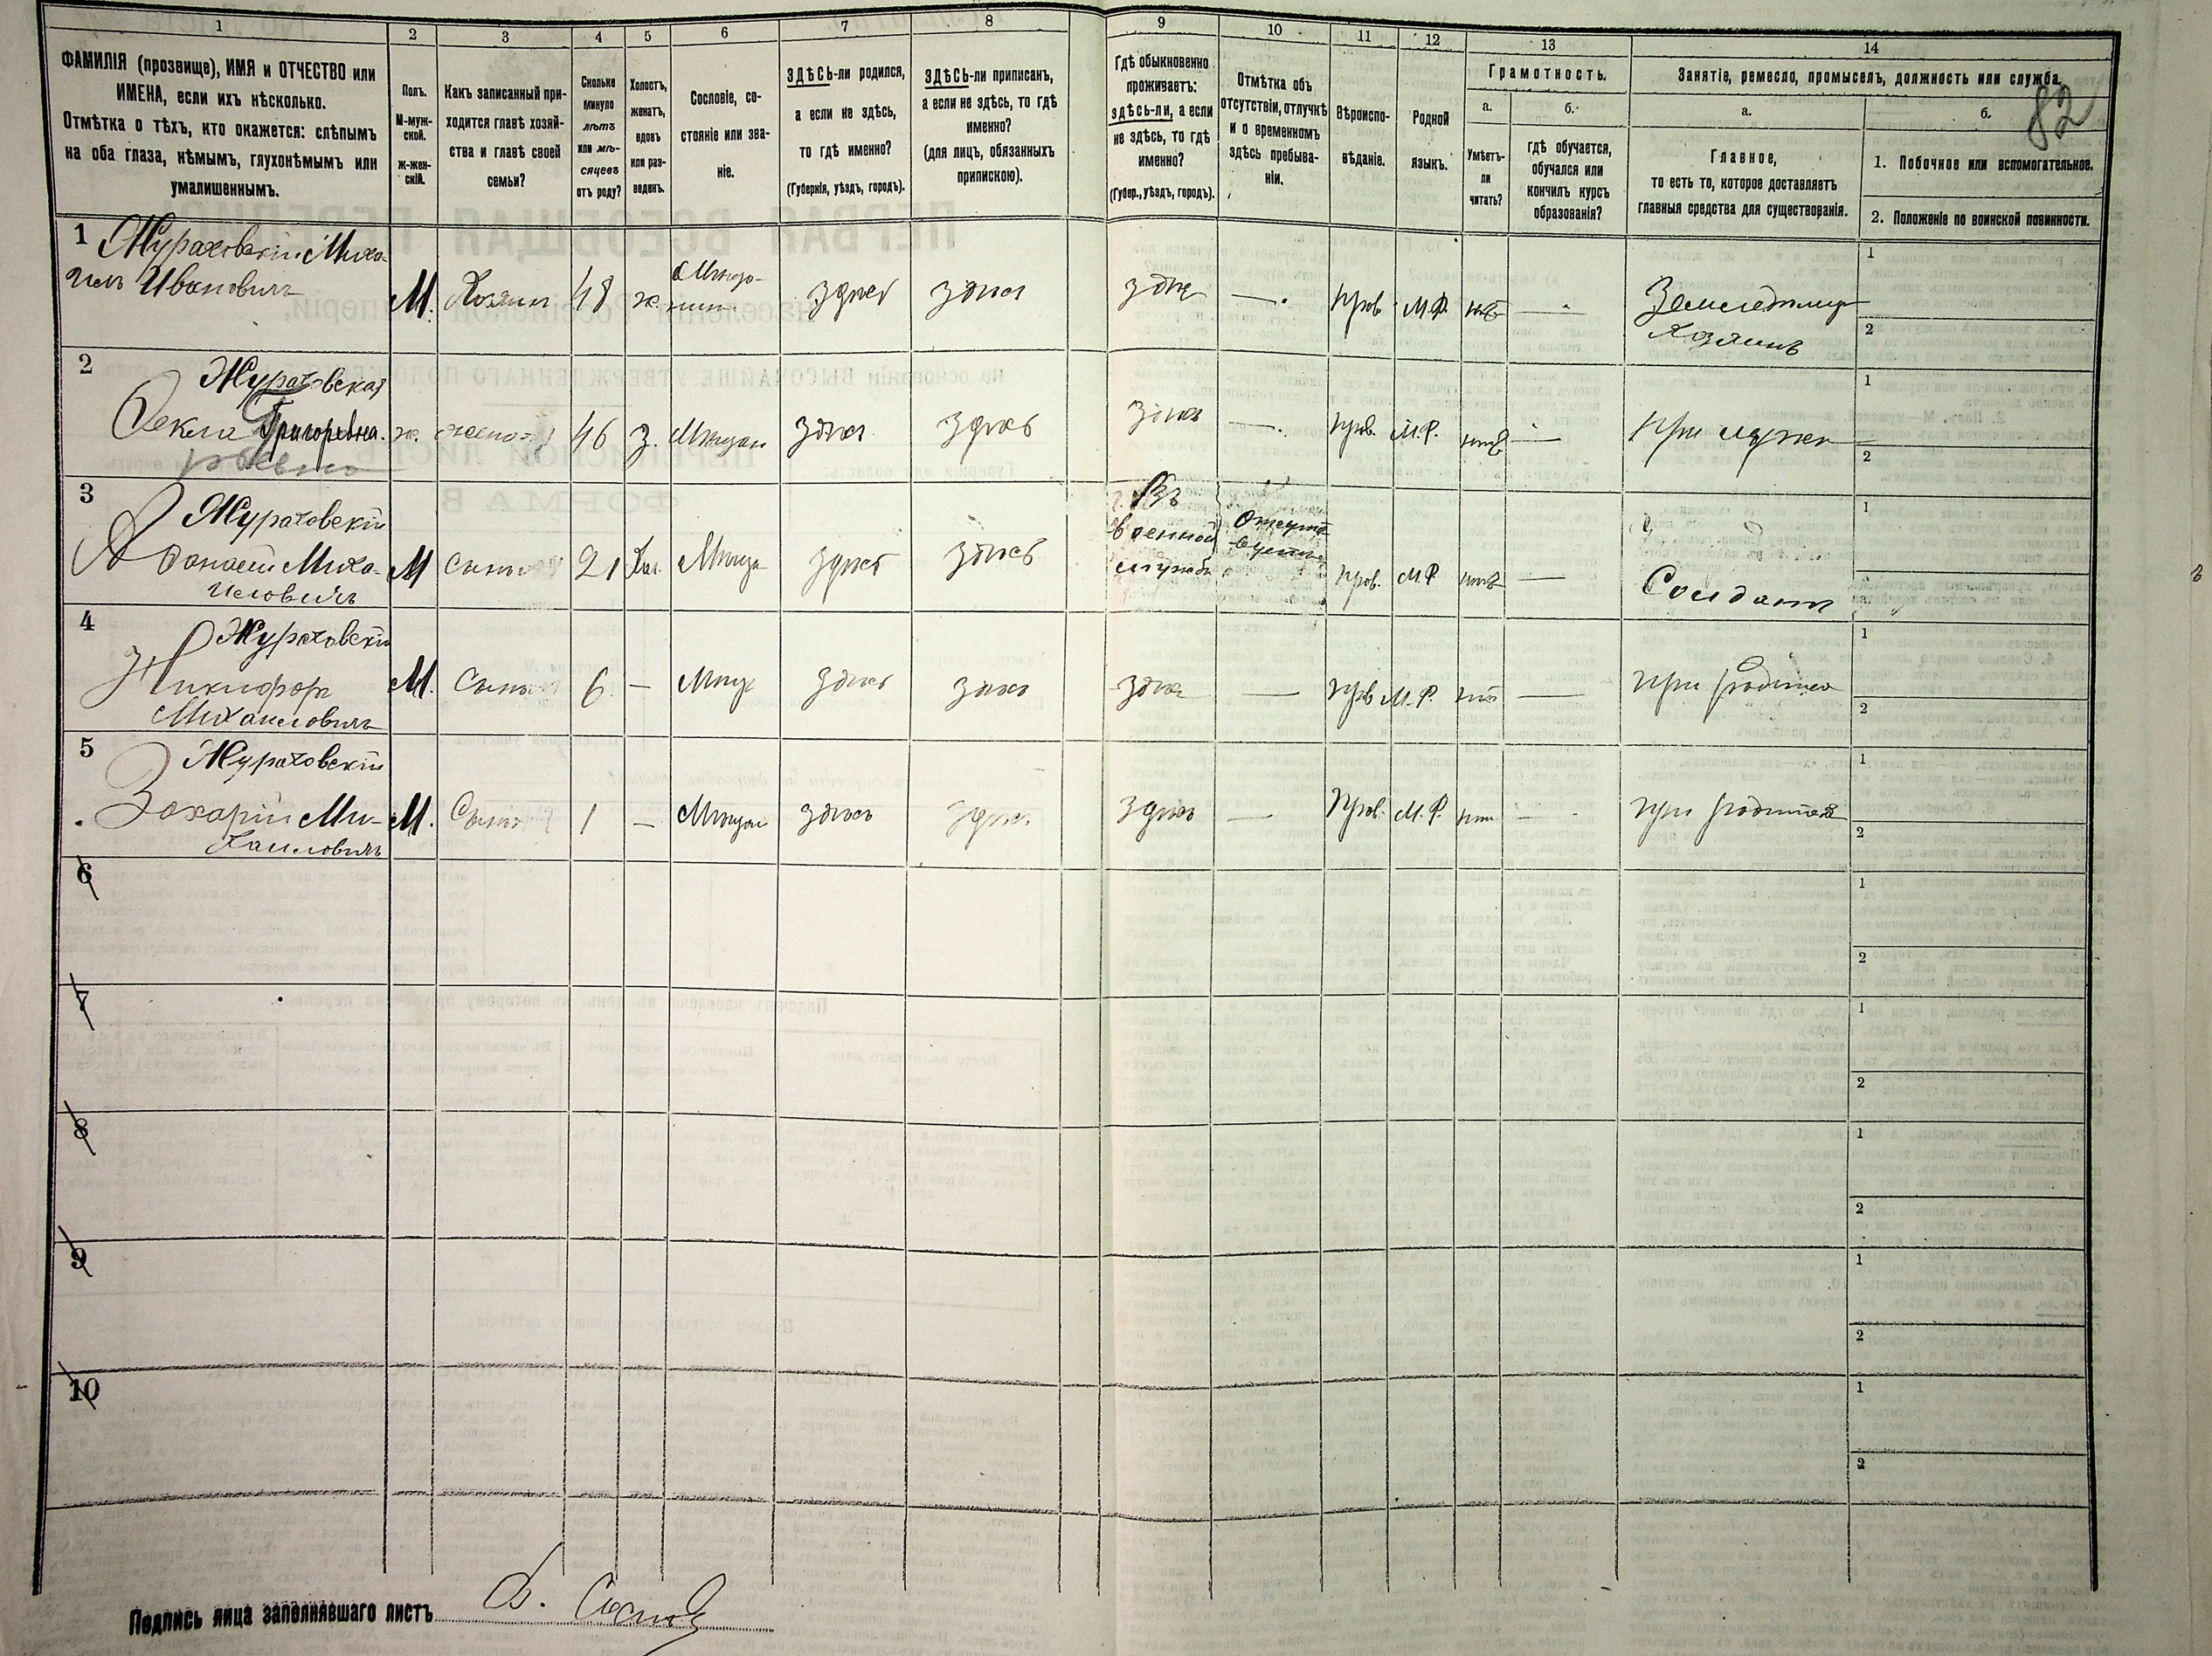 1 2 3 4 5 6 7 8 9 10 11 12 13 14
ФАМИЛІЯ (прозвище), ИМЯ и ОТЧЕСТВО или
ИМЕНА, если ихъ нѣсколько.
Отмѣтка о тѣхъ, кто окажется: слѣпымъ
на оба глаза, нѣмымъ, глухонѣмымъ или
умалишеннымъ.
Полъ.
М-муж-
ской.
ж-жен-
скій.
Какъ записанный при-
ходится главѣ хозяй-
ства и главѣ своей
семьи?
Сколько
минуло
лѣтъ
или мѣ-
сяцевъ
отъ роду?
Холостъ,
женатъ,
вдовъ
или раз-
веденъ.
Сословіе, со-
стояніе или зва-
ніе.
ЗДѢСЬ-ли родился,
а если не здѣсь,
то гдѣ именно?
(Губернія, уѣздъ, городъ).
ЗДѢСЬ-ли приписан,
а если не здѣсь, то гдѣ
именно?
(для лицъ, обязанныхъ
припискою).
Гдѣ обыкновенно
проживаетъ:
здѣсь-ли, а если
не здѣсь, то гдѣ
именно?
(Губер., уѣздъ, городъ).
Отмѣтка объ
отсутствіи, отлучкѣ
и о временномъ
здѣсь пребыва-
ніи.
Вѣроиспо-
вѣданіе.
Родной
языкъ.
Грамотность.
а.
Умѣетъ-
ли
читать?
б.
гдѣ обучается,
обучался или
кончилъ курсъ
образованія?
Занятіе, ремесло, промыселъ, должность или служба.
82
а.
Главное,
то есть то, которое доставляетъ
главныя средства для существованія.
б.
1. Побочное или вспомогательное.
2. Положеніе по воинской повинности.
1 Жураховскій Миха-
илъ Ивановичъ
М. Хозяин 48 ж. здѣсь здѣсь здѣсь —. Прав. М.Р. нѣтъ — Земледѣлец
Хозяинъ
1
2
2 Жураховская
Фекла Григоревна.
ж. жена 46 З. Мѣщан здѣсь здѣсь здѣсь —. Прав. М.Р. нѣтъ — При мужѣ
1
2
3 Жураховскій
Афанасій Миха-
иловичъ
М Сынъ 21 Хол. Мѣща здѣсь здѣсь
Въ
военной
службѣ
Отсутст
вуетъ
Прав. М.Р. нѣтъ — Солдат
1
2
4 Жураховскій
Никифор
Михаиловичъ
М. Сынъ 6 — Мѣщ здѣсь здѣсь здѣсь — Прав М.Р. нѣтъ — При родител
1
2
5 Жураховскій
Захарій Ми-
хаиловичъ
М. Сынъ 1 — Мѣщан здѣсь здѣсь здѣсь — Прав. М.Р. нѣтъ — при родител
1
2
6
1
2
7
1
2
8
1
2
9
1
2
10
1
2
Подпись лица заполнявшаго листъ